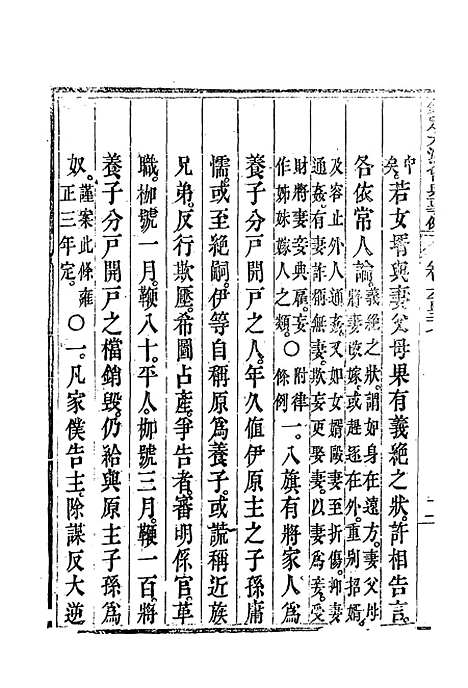 申矣。若女壻與妻父母果有義絕之狀。許相告言。
各依常人論。義絕之狀。謂如身在遠方。妻父母
將妻改嫁。或趕逐在外。重別招壻。
及容止外人通姦。又如女壻毆妻至折傷。抑妻
通姦。有妻詐稱無妻。欺妄更娶妻。以妻爲妾。受
財將妻妾典雇。妄
作姊妹嫁人之類。○附律
條例
一。八旗有將家人爲
養子分戸開戸之人。年久值伊原主之子孫庸
懦。或至絕嗣。伊等自稱原爲養子。或謊稱近族
兄弟。反行欺壓。希圖占產。爭告者。審明係官。革
職。枷號一月。鞭八十。平人。枷號三月。鞭一百。將
養子分戸開戸之檔銷毀。仍給與原主子孫爲
奴。謹案此條雍
正三年定。○一。凡家僕告主。除謀反大逆